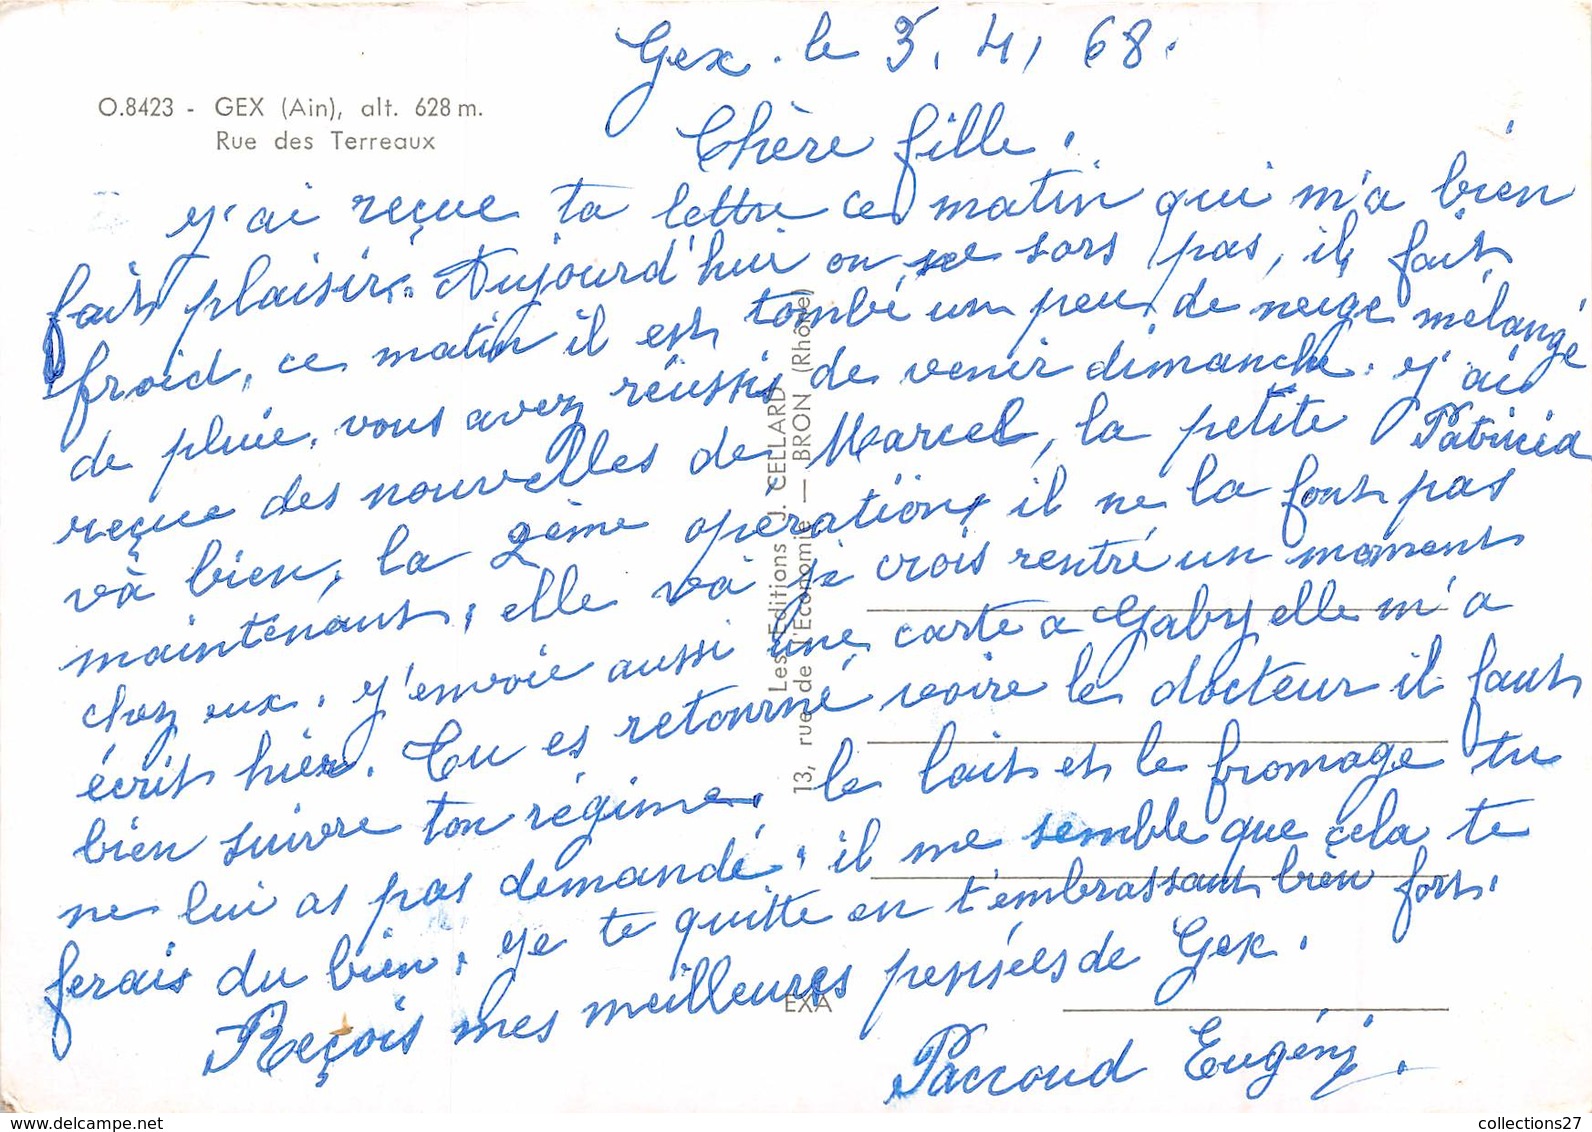 Gex . le 3. 4, 68.
O.8423 - GEX (Ain), alt. 628 m.
Rue des Terreaux
Chère fille.
y'ai reçue ta lettre ce matin qui m'a bien
fait plaisir. Aujourd'hui on se sors pas, il fait
froid, ce matin il est tombé un peu de neige mélangé
de pluie, vous avez réussis de venir dimanche. y'ai
reçue des nouvelles de Marcel, la petite Patricia
và bien, la 2ème opération, il ne la font pas
maintenant, elle và je crois rentré un moment
chez eux. y'envoie aussi une carte a Gaby elle m'a
écrit hièr. Tu es retourné voire le docteur il faut
bien suivre ton régime. le lait et le fromage tu
ne lui as pas demandé, il me semble que cela te
ferais du bien. ye te quitte en t'embrassant bien fort.
Reçois mes meilleures pensées de Gex.
Paccoud Eugénj.
Les Editions J. CELLARD
13, rue de l'Economie — BRON (Rhône)
EXA
www.delcampe.net
collections27